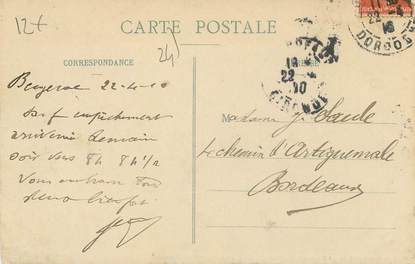 12+
CARTE POSTALE
24
CORRESPONDANCE
Bergerac 22-4-10
Sauf empêchement
arriverai demain
soir vers 8h 8h 1/2
Vous embrasse tous
22 4
10
22 4
10
DORDOGNE
GIRONDE
Madame J.
4 chemin d'Artiguemale
Bordeaux